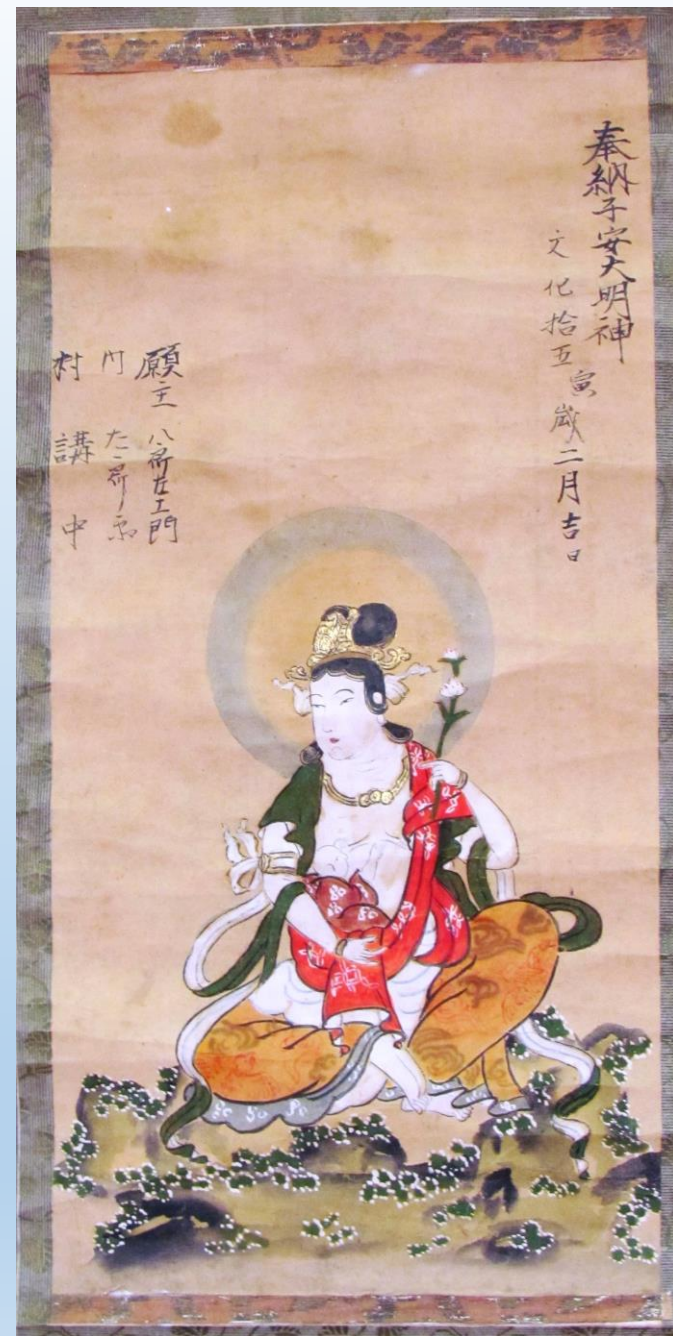 奉納子安大明神
文化拾五寅歳二月吉日
願主 八郎左エ門
村 講中